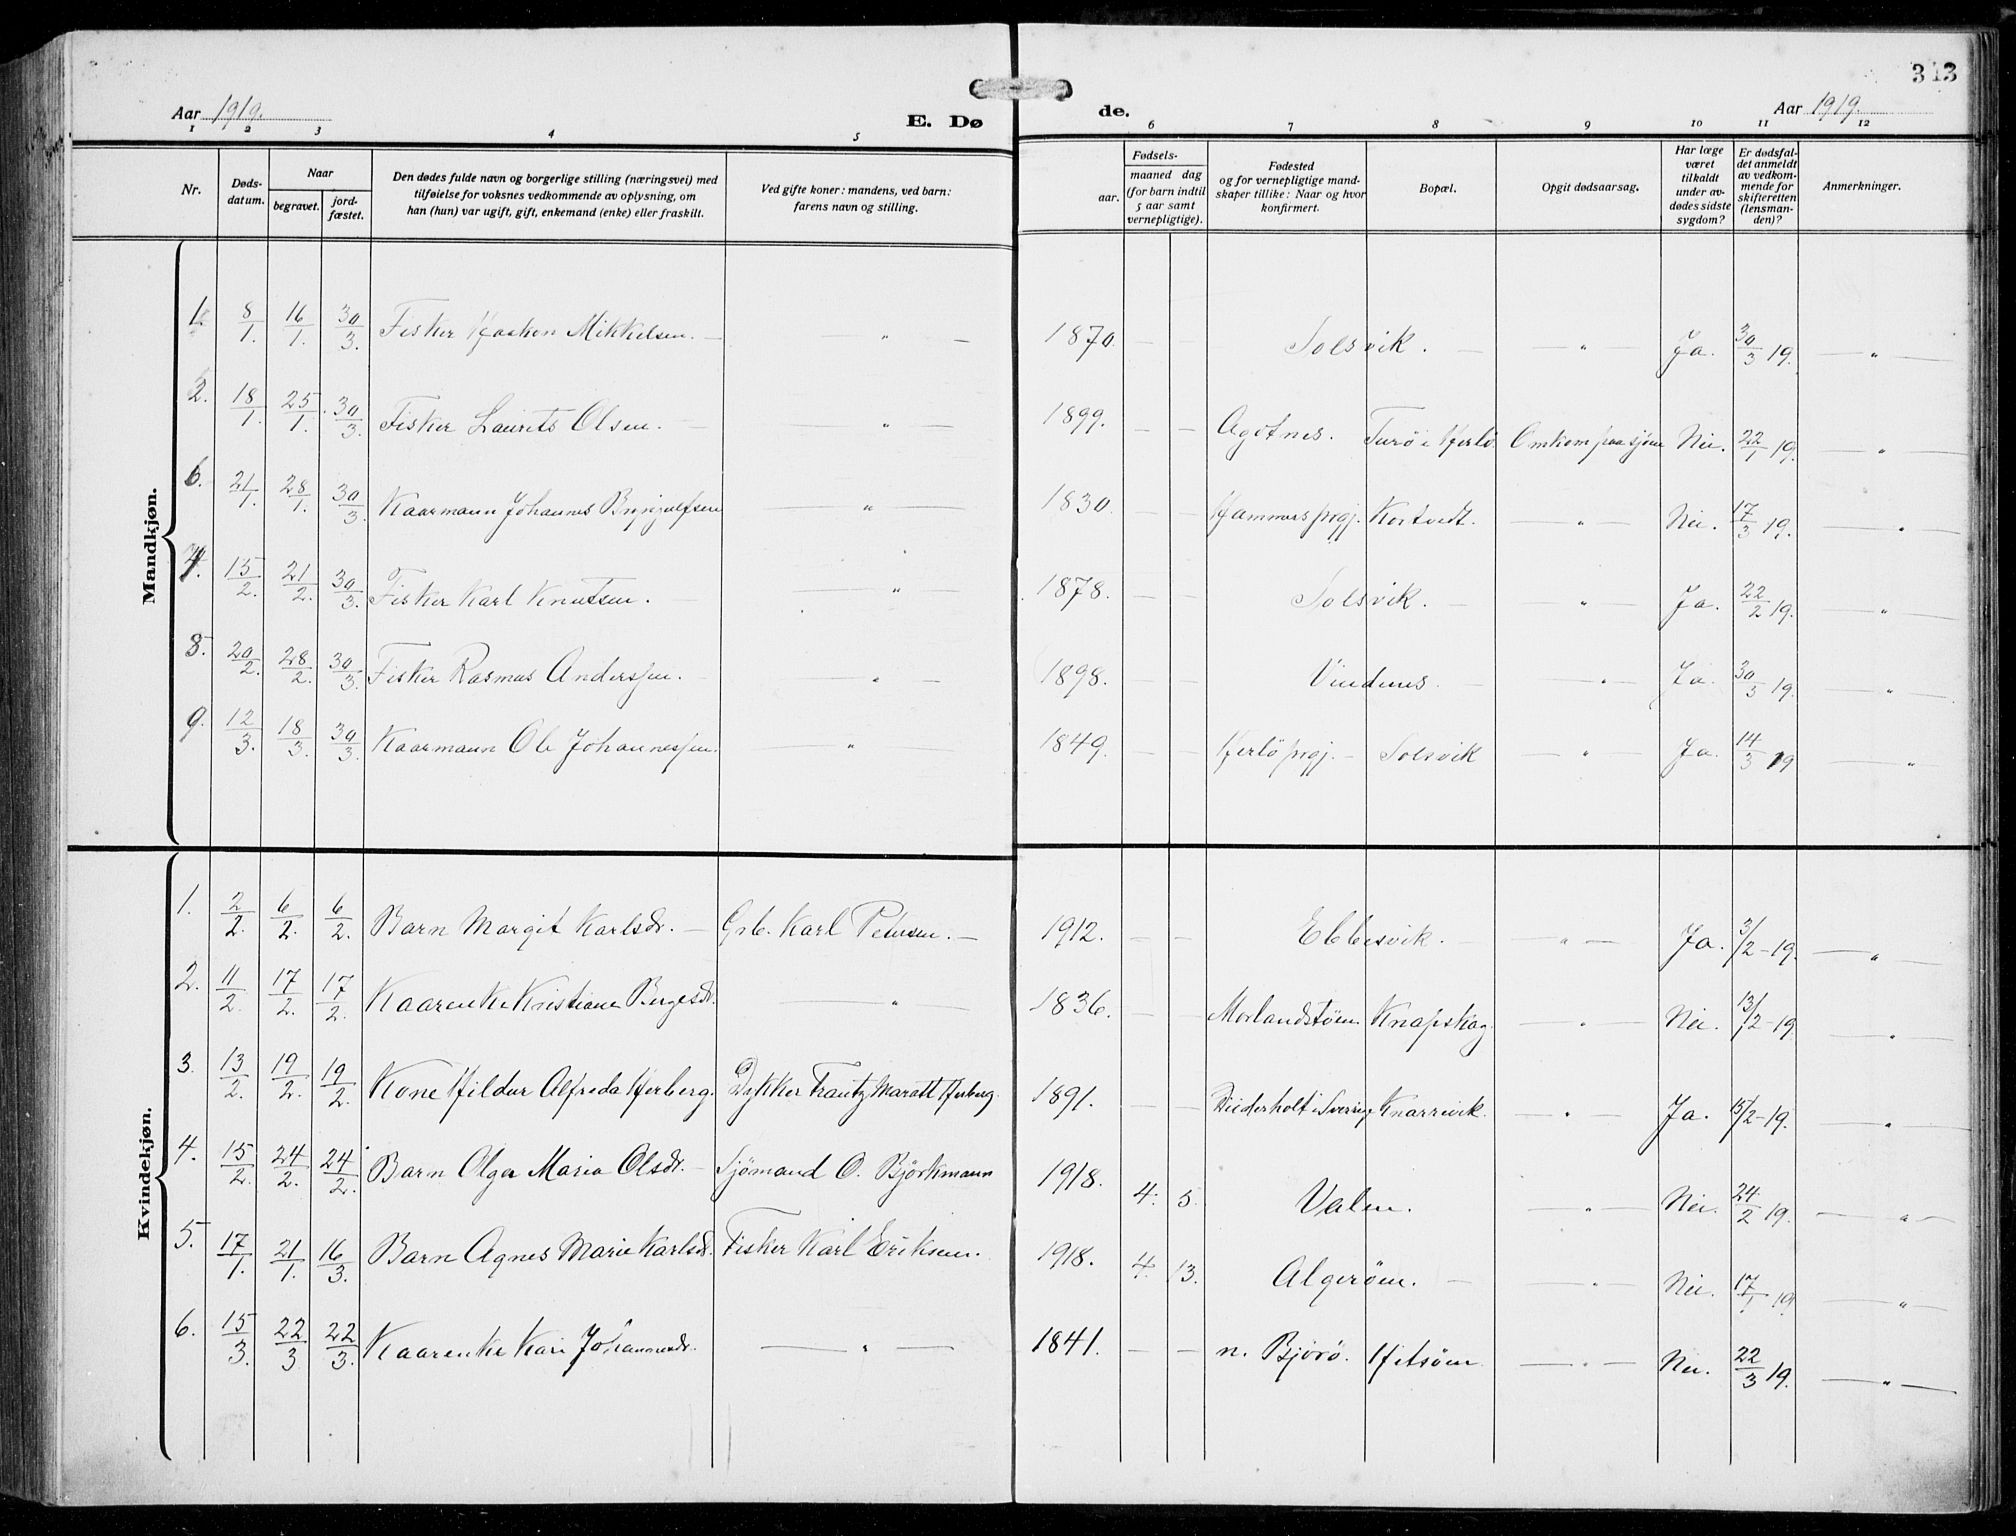 313
Aar 1919.
E. Dø
de.
Aar 1919.
1 2 3 4 5 6 7 8 9 10 11 12
Nr.
Døds-
datum.
Naar
begravet.
jord-
fæstet.
Den dødes fulde navn og borgerlige stilling (næringsvei) med
tilføielse for voksnes vedkommende av oplysning, om
han (hun) var ugift, gift, enkemand (enke) eller fraskilt.
Ved gifte koner: mandens, ved barn:
farens navn og stilling.
Fødsels-
aar.
maaned dag
(for barn indtil
5 aar samt
vernepligtige).
Fødested
og for vernepligtige mand-
skaper tillike: Naar og hvor
konfirmert.
Bopæl.
Opgit dødsaarsag.
Har læge
været
tilkaldt
under av-
dødes sidste
sygdom?
Er dødsfal-
det anmeldt
av vedkom-
mende for
skifteretten
(lensman-
den)?
Anmerkninger.
Mandkjøn.
1. 8/1. 16/1. 30/3. Fisker Haakon Mikkelsen. — " — 1870. — — Solsvik. — " — Ja. 30/3 19. — " —
2. 18/1. 25/1. 30/3. Fisker Laurits Olsen. — " — 1899. — — Agotnes. Turö i Herlö Omkom paa sjöen Nei. 22/1 19. — " —
6. 21/1. 28/1. 30/3. Kaarmann Johannes Brynjulfsen — " — 1830. — — Hammersprgj. Kortvedt. — " — Nei. 17/3 19. — " —
7. 15/2. 21/2. 30/3. Fisker Karl Knutsen. — " — 1878. — — Solsvik. — " — Ja. 22/2 19. — " —
8. 20/2. 28/2. 30/3. Fisker Rasmus Anderssen. — " — 1898. — — Vindenes — " — Ja. 30/3 19. — " —
9. 12/3. 18/3. 30/3. Kaarmann Ole Johannessen. — " — 1849. — — Herlö prgj. — Solsvik — " — Ja. 14/3 19 — " —
Kvindekjøn.
1. 2/2. 6/2. 6/2. Barn Margit Karlsdr. — Grb. Karl Petersen. — 1912. — — Ebbesvik. — " — Ja. 3/2-19. — " —
2. 11/2. 17/2. 17/2. Kaarenke Kristiane Bergesdr. — " — 1836. — — Morlandstöen Knapskog. — " — Nei. 13/2-19 — " —
3. 13/2. 19/2. 19/2. Kone Hildur Alfreda Herberg. Dykker Frautz Maratt Herberg. 1891. — — i Sverige Knarrevik. — " — Ja. 15/2-19. — " —
4. 15/2. 24/2. 24/2. Barn Olga Maria Olsdr. — Sjömand O. Björkmann 1918. 4. 5. Valen. — " — Nei. 24/2 19. — " —
5. 17/1. 21/1. 16/3. Barn Agnes Marie Karlsdr. Fisker Karl Eriksen. 1918. 4. 13. Algeröen. — " — Nei. 17/1 19. — " —
6. 15/3. 22/3 22/3. Kaarenke Kari Johannesdr. — " — 1841. — — n. Bjorö. Hetsöen. — " — Nei. 22/3 19. — " —